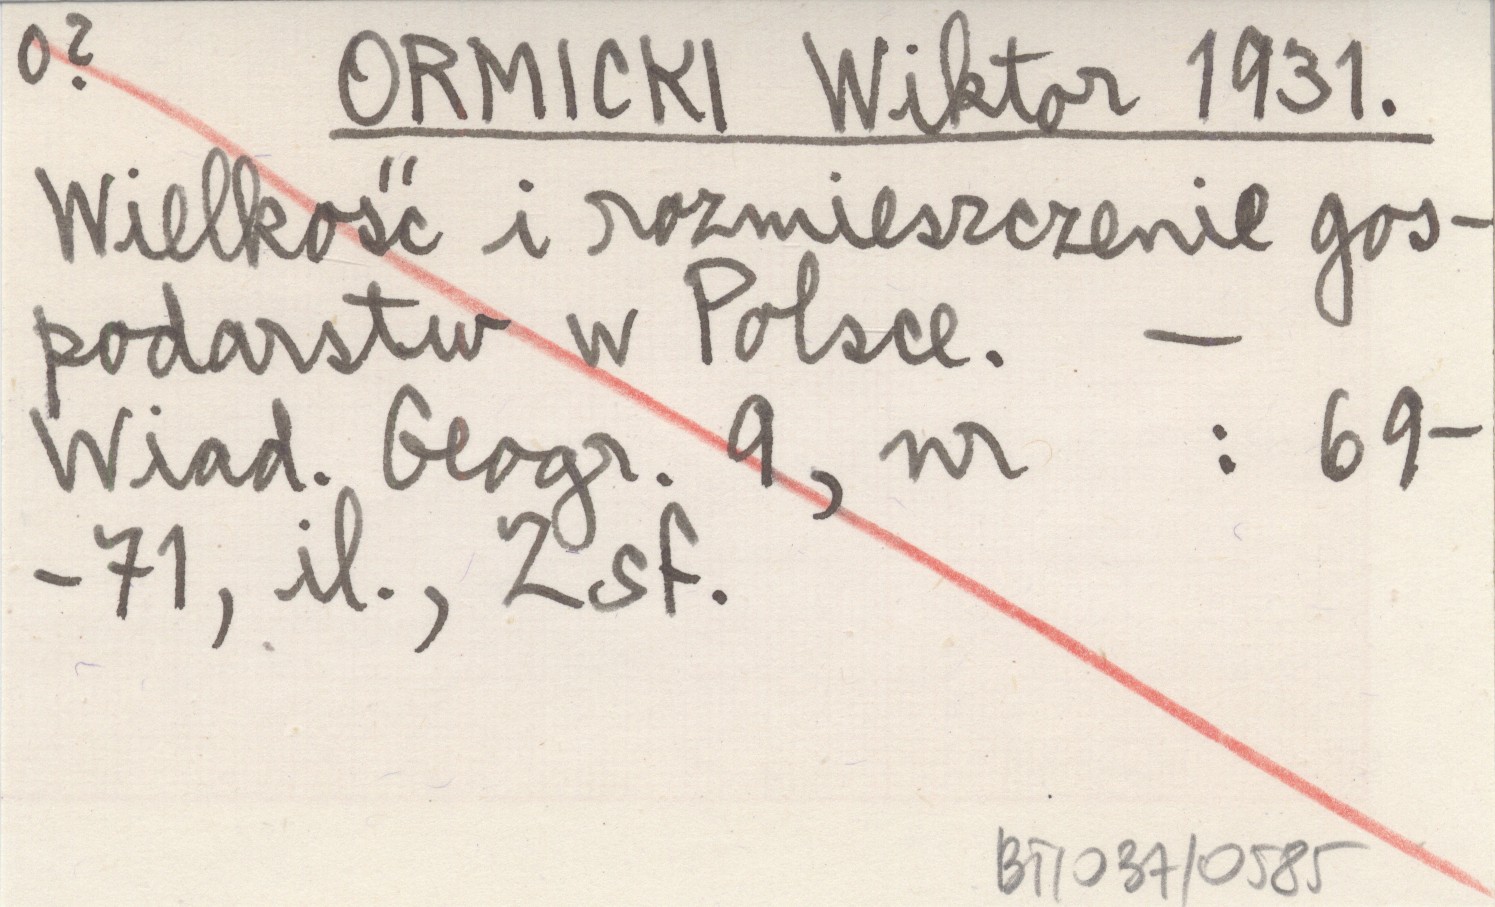 o?
ORMICKI Wiktor 1931.
Wielkość i rozmieszczenie gos-
podarstw w Polsce. —
Wiad. Geogr. 9, nr : 69-
-71, il., Zsf.
BT/037/0585